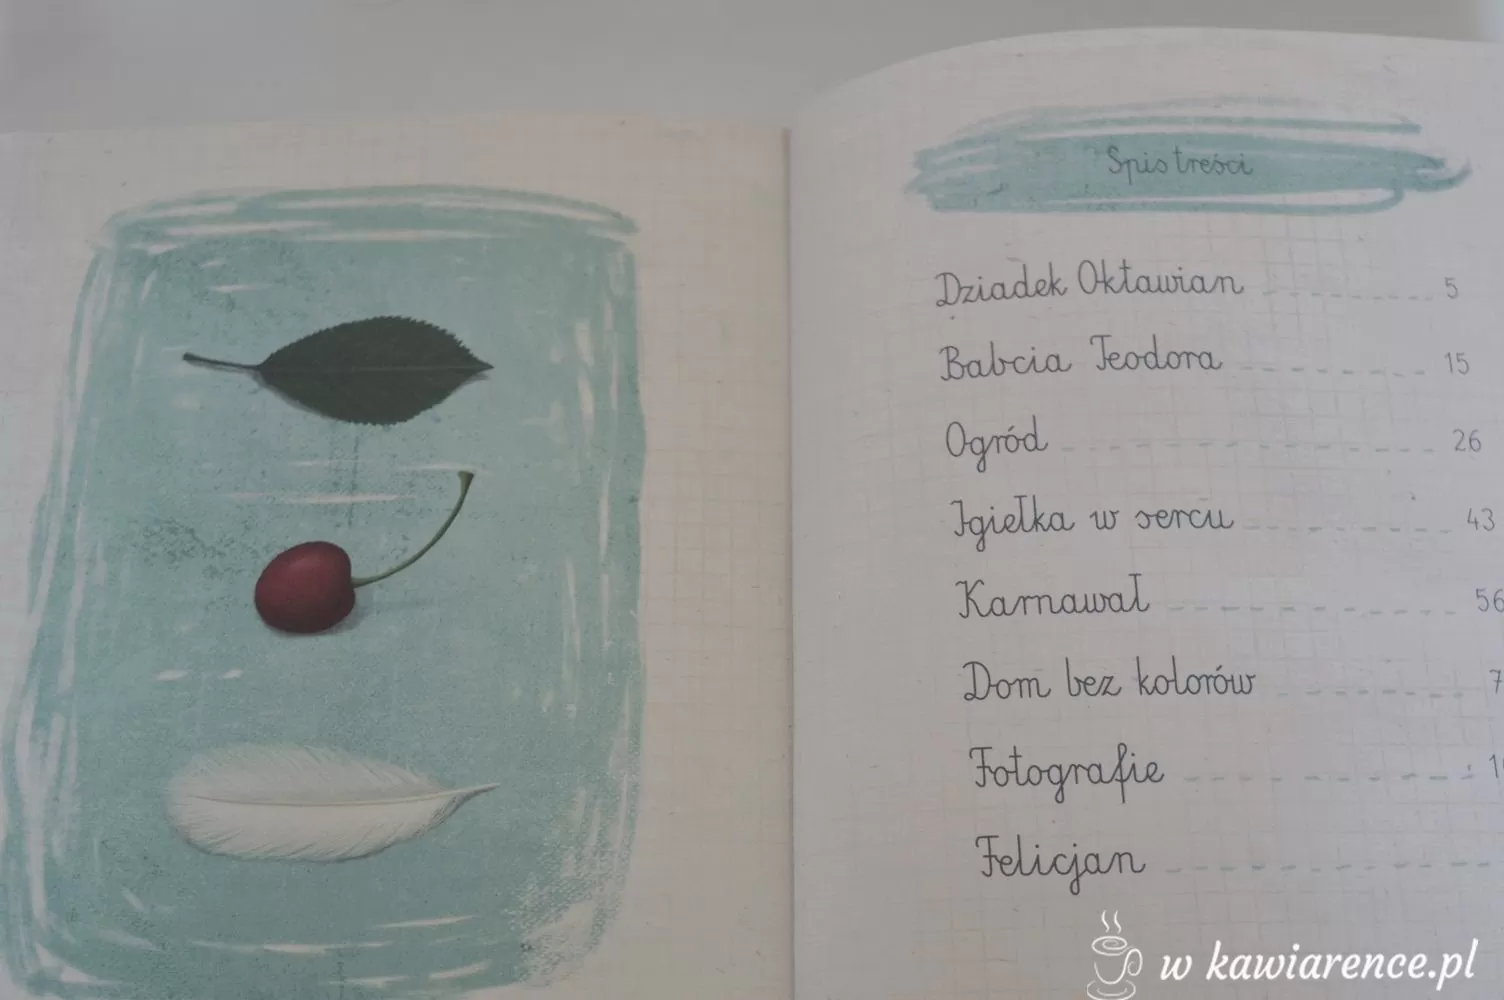 Spis treści
Dziadek Oktawian 5
Babcia Teodora 15
Ogród 26
Igiełka w sercu 43
Karnawał 56
Dom bez kolorów
Fotografie
Felicjan
w kawiarence.pl